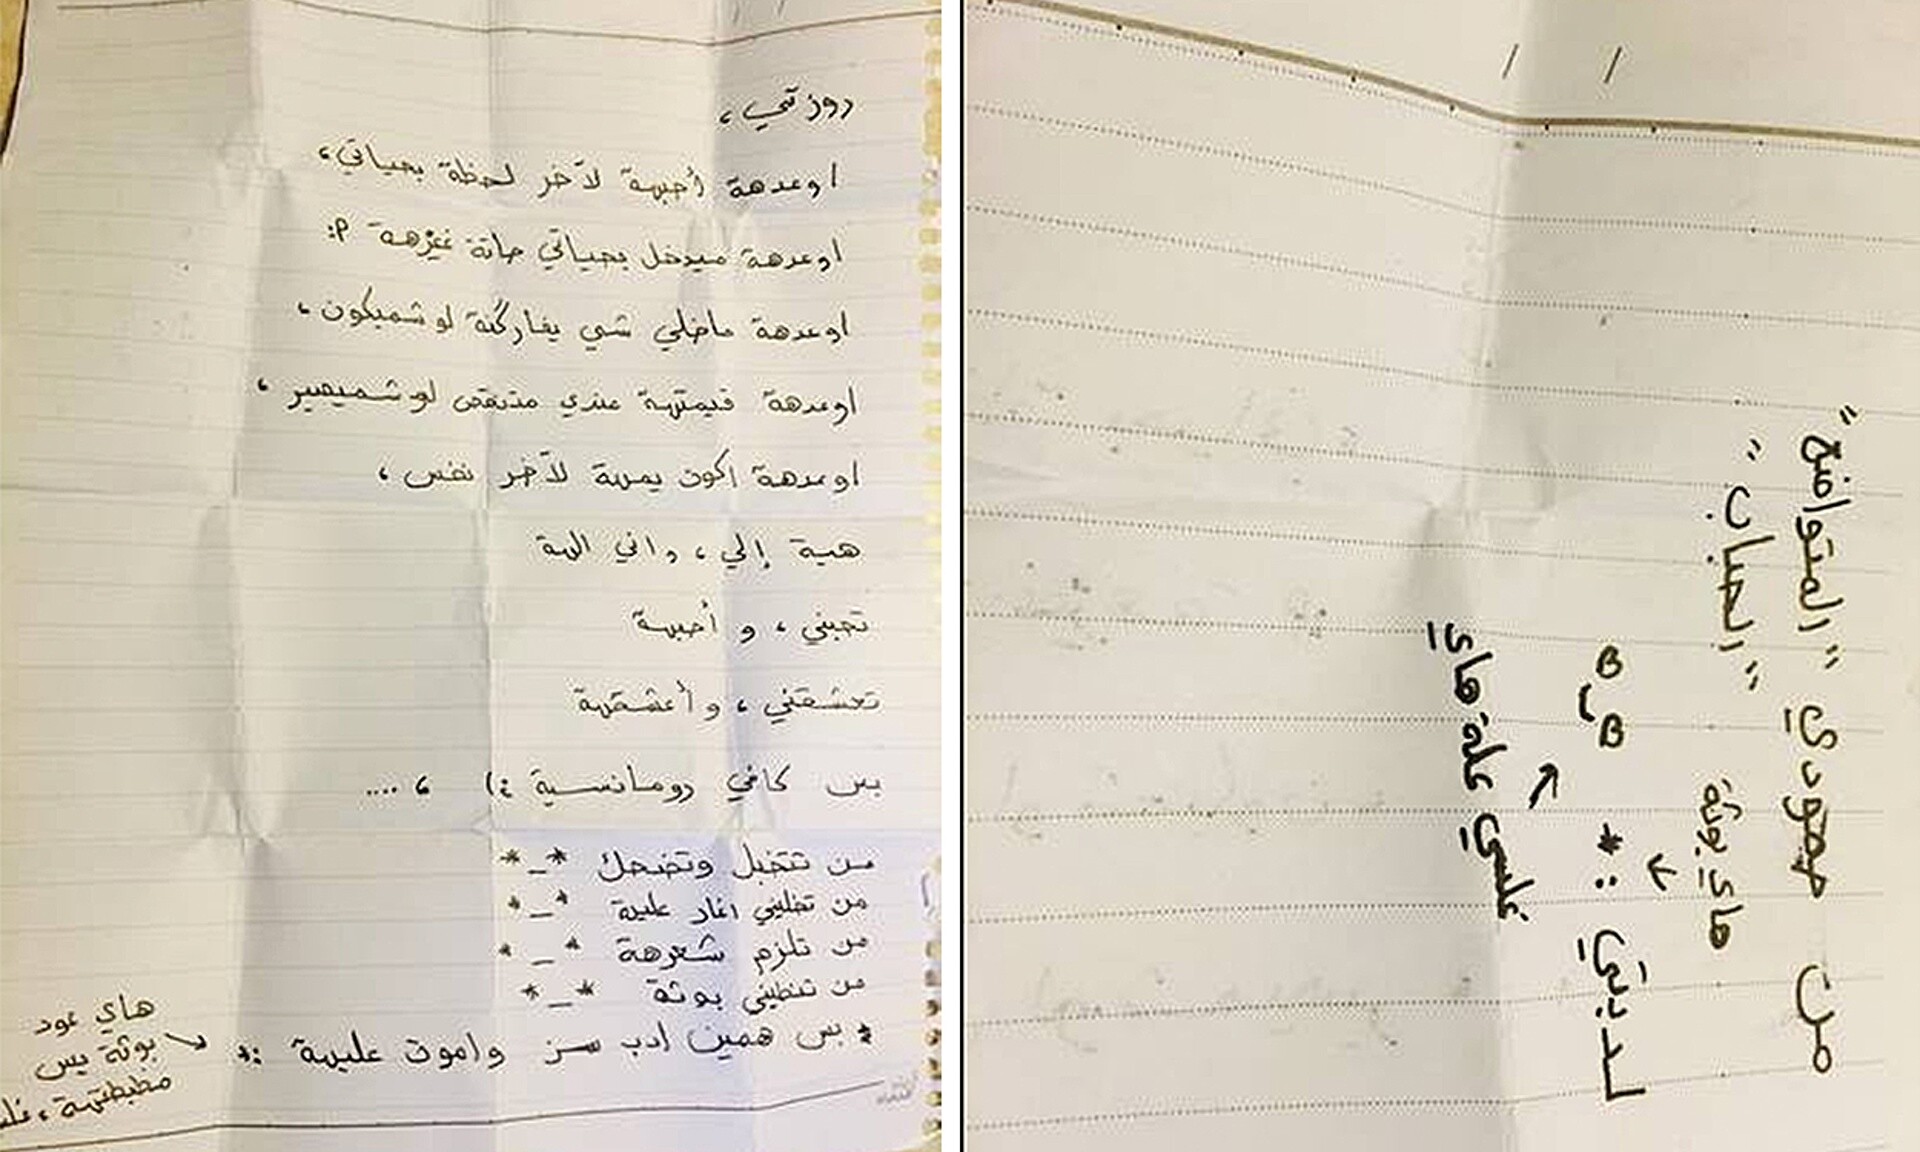 روزتي،
اوعدهة أحبهة لآخر لحظة بحياتي،
اوعدهة ميدخل بحياتي حاتة غيرهة :P
اوعدهة ماخلي شي يفاركنة لو شميكون،
اوعدهة قيمتهة عندي متنقص لو شميصير،
اوعدهة اكون يمهة لآخر نفس،
هية إلي، واني الهة
تحبني، و أحبهة
تعشقني، و أعشقهة
بس كافي رومانسية :) ، ....
من تتخبل وتضحك *_*
من تخليني اغار علية *_*
من تلزم شعرهة *_*
من تنطيني بوثة *_*
* بس همين ادب سز واموت عليهة :*
هاي عود
بوثة بس
مطبطتهة، غلسي
من حمودي "المتواضع"
"الحباب"
هاي بوثة
لدبتي :* B ں B
غلسي علة هاي